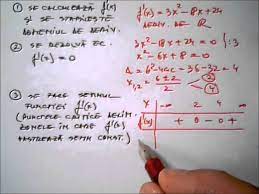 ① SE CALCULEAZĂ f'(x)
ŞI SE STABILEŞTE
DOMENIUL DE
DERIV.
② SE REZOLVĂ EC.
f'(x) = 0
③ SE FACE SEMNUL
FUNCŢIEI f'(x)
(PUNCTELE CRITICE DELIM.
ZONELE ÎN CARE f'(x)
PĂSTREAZĂ SEMN CONST.)
f'(x) = 3x² - 18x + 24
DERIV. R
② 3x² - 18x + 24 = 0
Δ = b² - 4ac = 36 - 32 = 4
x1,2 = 6 ± 2 / 2 4 2
x -∞ 2 4 ∞
f'(x) + 0 - 0 +